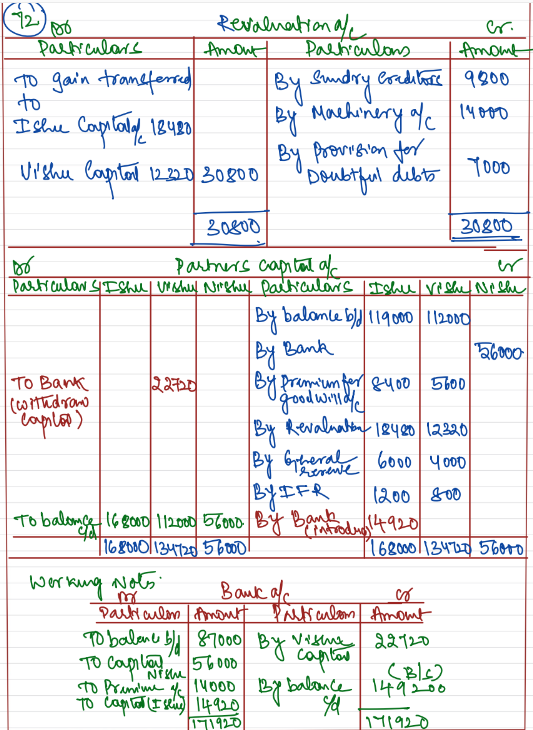 72
Dr Revaluation a/c Cr.
Particulars Amount Particulars Amount
To gain transferred By Sundry Creditors 9800
to By Machinery a/c 14000
Ishu Capital a/c 18480 By Provision for
Vishu Capital 12320 30800 Doubtful debts 7000
30800 30800
Dr Partners Capital a/c Cr
Particulars Ishu Vishu Nishu Particulars Ishu Vishu Nishu
By balance b/d 119000 112000
By Bank 56000
To Bank 22720 By Premium for 8400 5600
(withdraw goodwill a/c
Capital) By Revaluation 18480 12320
By General 6000 4000
reserve
By IFR 1200 800
To balance 168000 112000 56000 By Bank 14920
c/d (introduce)
168000 134720 56000 168000 134720 56000
Working Note:
Dr Bank a/c Cr
Particulars Amount Particulars Amount
To balance b/d 87000 By Vishu 22720
To Capital Nishu 56000 Capital
To Premium a/c 14000 By balance (B/S)
To Capital (Ishu) 14920 c/d 149200
171920 171920